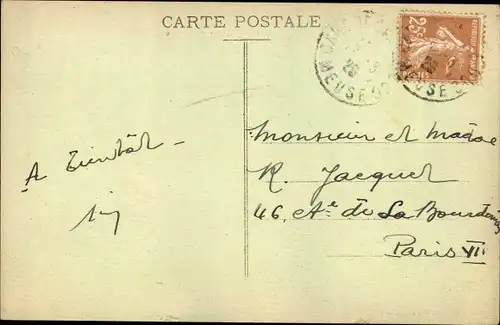 CARTE POSTALE
25c
MEUSE
MEUSE
A Bientôt -
Monsieur et Madame
R. Jacquet
46, Av.e de La Bourdonnais
Paris VII